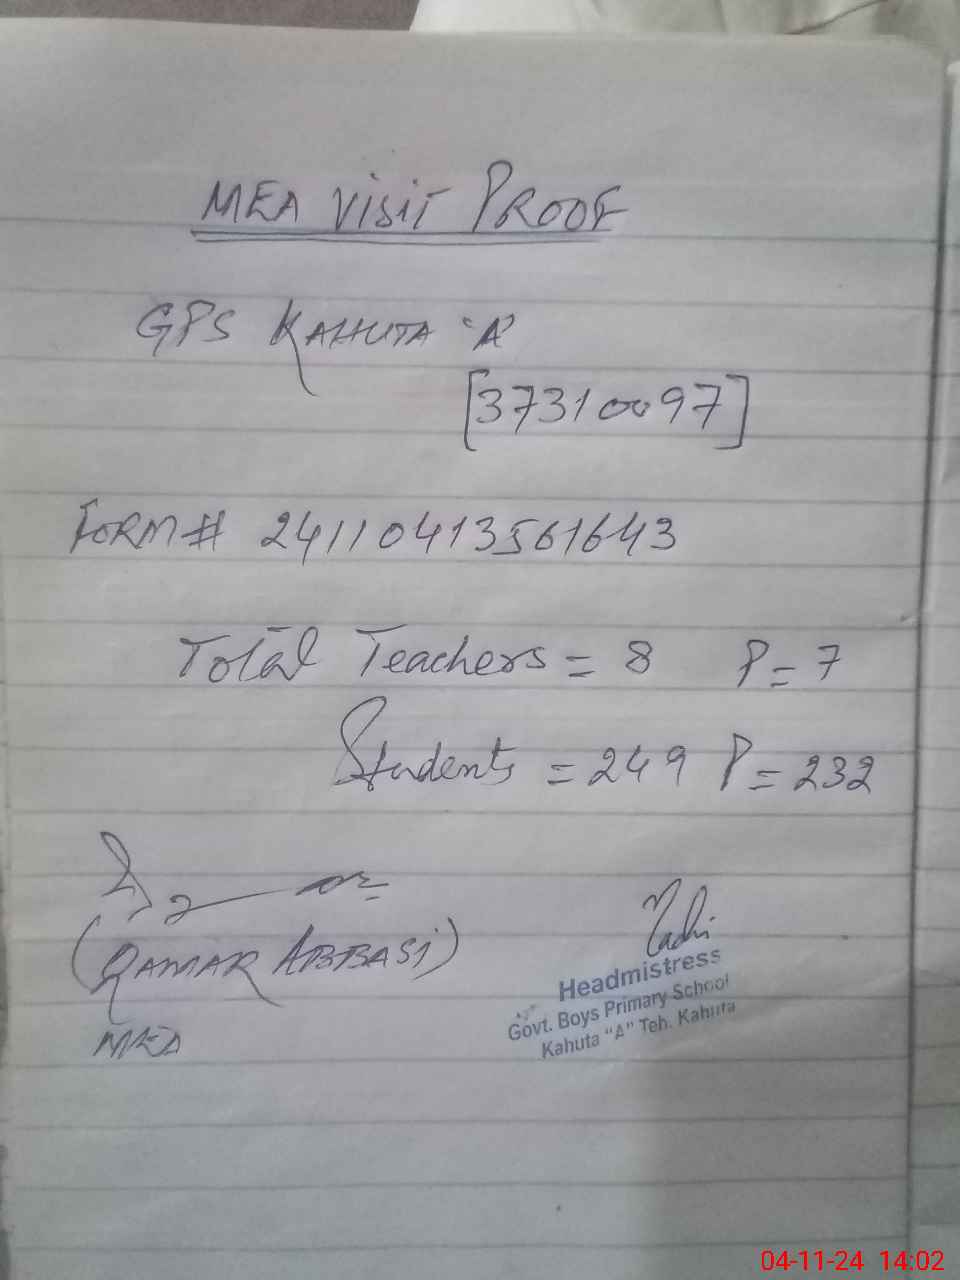 MEA Visit PROOF
GPS KAHUTA 'A'
[37310097]
FORM# 24110413561643
Total Teachers = 8 P = 7
Students = 249 P = 232
(QAMAR ABBASI)
MEA
Headmistress
Govt. Boys Primary School
Kahuta "A" Teh. Kahuta
04-11-24 14:02